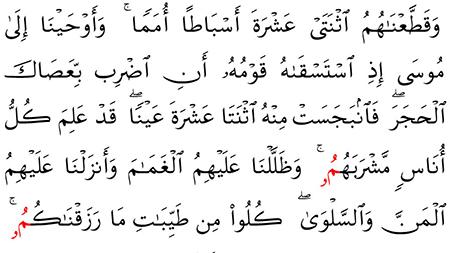 وَقَطَّعْنَٰهُمُ ٱثْنَتَىْ عَشْرَةَ أَسْبَاطًا أُمَمًا ۚ وَأَوْحَيْنَا إِلَىٰ
مُوسَىٰ إِذِ ٱسْتَسْقَىٰهُ قَوْمُهُۥ أَنِ ٱضْرِب بِّعَصَاكَ
ٱلْحَجَرَ ۖ فَٱنۢبَجَسَتْ مِنْهُ ٱثْنَتَا عَشْرَةَ عَيْنًا ۖ قَدْ عَلِمَ كُلُّ
أُنَاسٍ مَّشْرَبَهُمُۥ ۚ وَظَلَّلْنَا عَلَيْهِمُ ٱلْغَمَٰمَ وَأَنزَلْنَا عَلَيْهِمُ
ٱلْمَنَّ وَٱلسَّلْوَىٰ ۖ كُلُوا۟ مِن طَيِّبَٰتِ مَا رَزَقْنَٰكُمُۥ ۚ